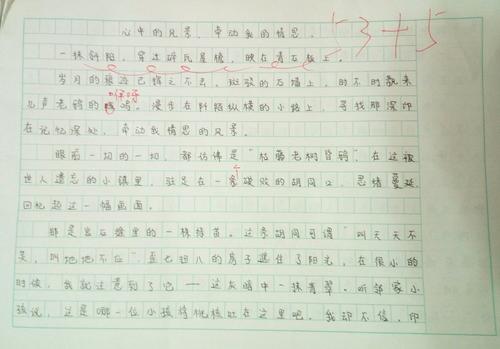 心中的风景，牵动我的情思。
53+5
一抹斜阳，穿过碎瓦屋檐，映在青石板上。
岁月的痕迹已擦之不去，斑驳的石墙上，时不时飘来
几声老鸦的鸣。漫步在阡陌纵横的小路上，寻找那深印
在记忆深处，牵动我情思的风景。
眼前一切的一切，都仿佛是“枯藤老树昏鸦”，在这被
世人遗忘的小镇里，驻足在一破败的胡同口，思绪蔓延
回忆起这一幅画面。
那是岩石缝里的一株绿苗。这条胡同可谓“叫天天不
灵，叫地地不应”，直七扭八的房子遮住了阳光，在很小的
时候，我就注意到了它——这灰暗中一抹青翠。听邻家小
孩说，这是哪一位小孩将桃核吐在这里吧。我却不信，印